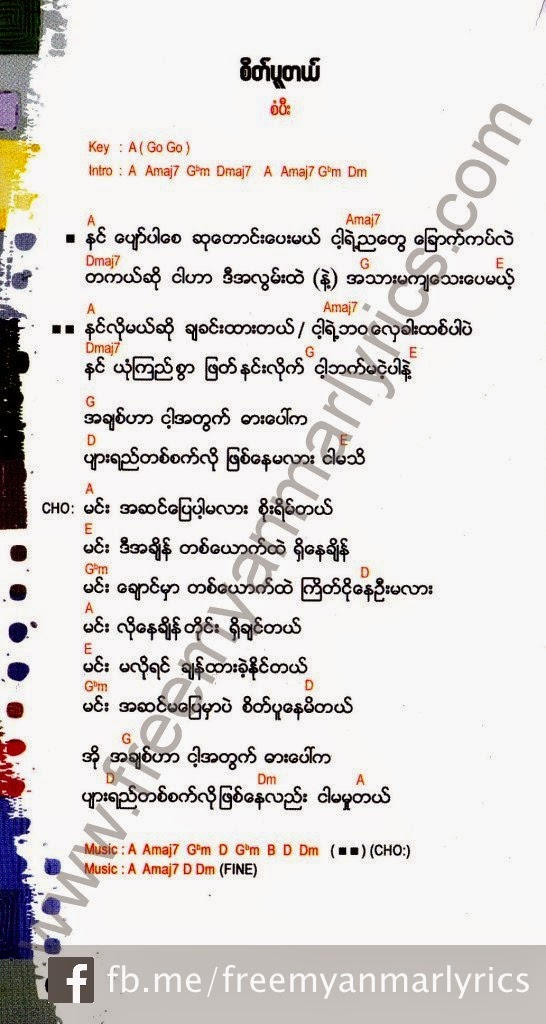 စိတ်ပူတယ်
စံပီး
Key : A ( Go Go )
Intro : A Amaj7 Gᵇm Dmaj7 A Amaj7 Gᵇm Dm
A Amaj7
■ နင် ပျော်ပါစေ ဆုတောင်းပေးမယ် ငါ့ရဲ့ညတွေ ခြောက်ကပ်လဲ
Dmaj7 G E
တကယ်ဆို ငါဟာ ဒီအလွမ်းထဲ (နဲ့) အသားမကျသေးပေမယ့်
A Amaj7
■■ နင်လိုမယ်ဆို ချခင်းထားတယ် / ငါ့ရဲ့ဘဝ လှေခါးထစ်ပါပဲ
Dmaj7 G E
နင် ယုံကြည်စွာ ဖြတ်နင်းလိုက် ငါ့ဘက်မငဲ့ပါနဲ့
G
အချစ်ဟာ ငါ့အတွက် ဓားပေါ်က
D E
ပျားရည်တစ်စက်လို ဖြစ်နေမလား ငါမသိ
A
CHO: မင်း အဆင်ပြေပါ့မလား စိုးရိမ်တယ်
E
မင်း ဒီအချိန် တစ်ယောက်ထဲ ရှိနေချိန်
Gᵇm D
မင်း ချောင်မှာ တစ်ယောက်ထဲ ကြိတ်ငိုနေဦးမလား
A
မင်း လိုနေချိန်တိုင်း ရှိချင်တယ်
E
မင်း မလိုရင် ချန်ထားခဲ့နိုင်တယ်
Gᵇm D
မင်း အဆင်မပြေမှာပဲ စိတ်ပူနေမိတယ်
G
အို အချစ်ဟာ ငါ့အတွက် ဓားပေါ်က
D Dm A
ပျားရည်တစ်စက်လိုဖြစ်နေလည်း ငါမမှုတယ်
Music : A Amaj7 Gᵇm D Gᵇm B D Dm (■■) (CHO:)
Music : A Amaj7 D Dm (FINE)
www.freemyanmarlyrics.com
fb.me/freemyanmarlyrics